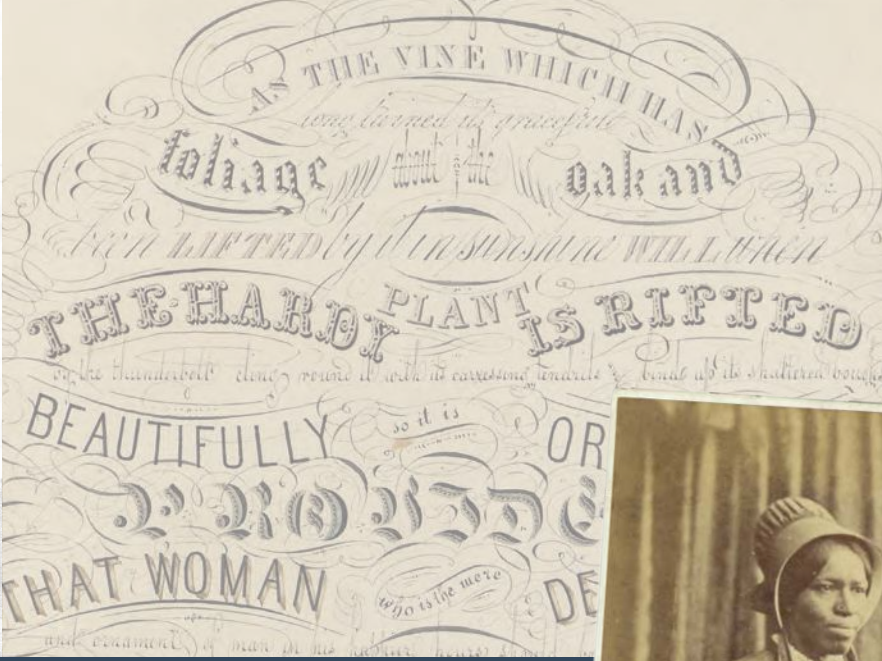 AS THE VINE WHICH HAS
long twined its graceful
foliage about the oak and
been LIFTED by it in sunshine WILL when
THE HARDY PLANT IS RIFTED
by the thunderbolt cling round it with its carressing tendrils & bind up its shattered boughs
BEAUTIFULLY so it is OR
PROVIDE
THAT WOMAN who is the mere DE
and ornament of man in his happier hours should b